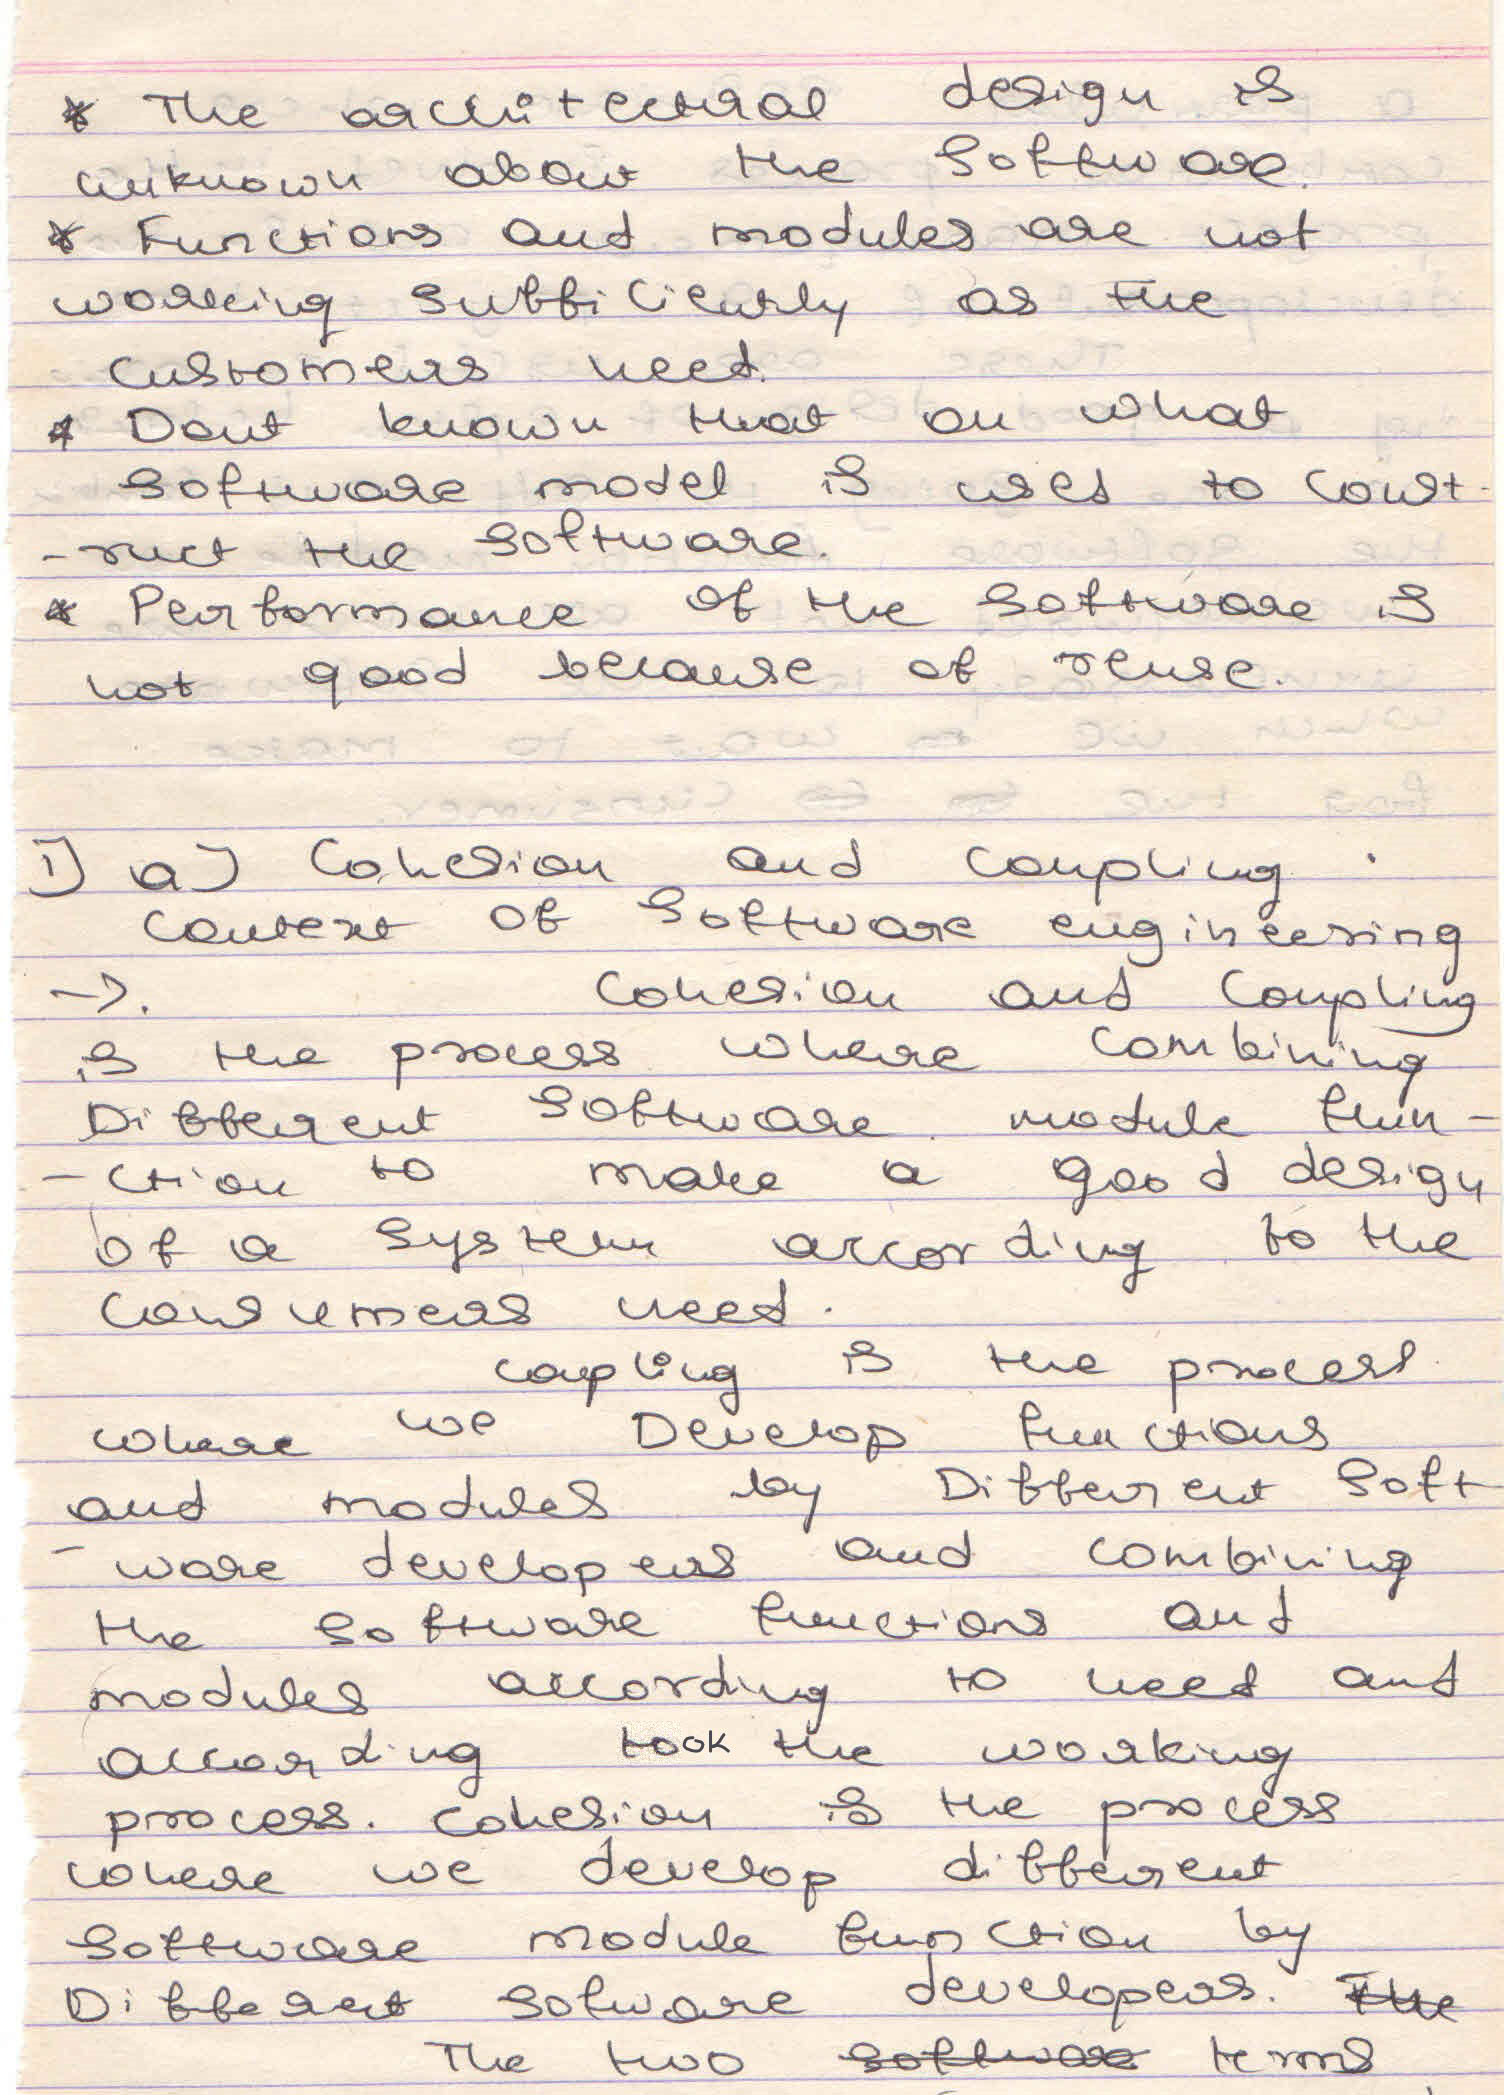 * The architectural design is
unknown about the software.
* Functions and modules are not
working sufficiently as the
customers need.
* Dont known that on what
software model is used to const-
-ruct the software.
* Performance of the software is
not good because of reuse.
1) a) Cohesion and coupling.
context of software engineering
->. Cohesion and coupling
is the process where combining
Different software module fun-
-ction to make a good design
of a system according to the
consumers need.
coupling is the process
where we Develop functions
and modules by Different soft
-ware developers and combining
the software functions and
modules according to need and
according took the working
process. cohesion is the process
where we develop different
software module function by
Different sotware developers. The
The two software terms